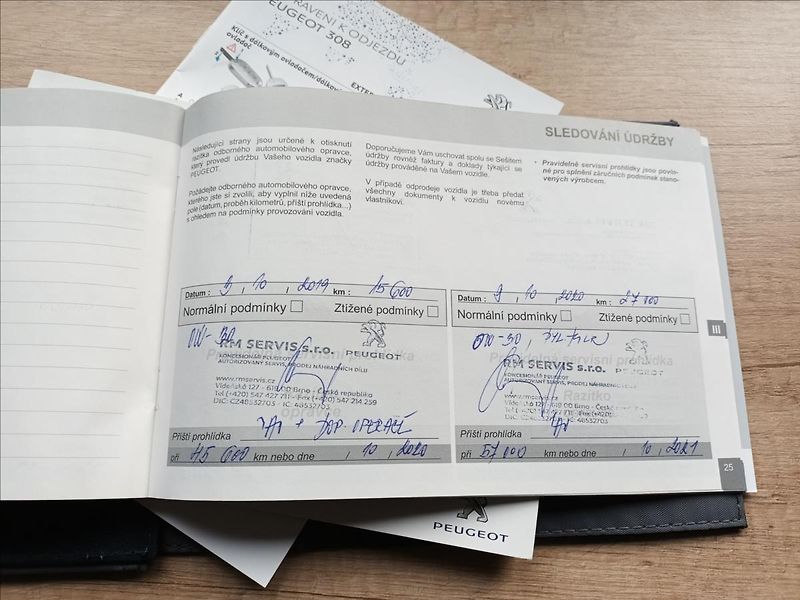 RAVENÍ K ODJEZDU
PEUGEOT 308
Klíč s dálkovým ovladačem/dálkový
ovladač
EXTER
SLEDOVÁNÍ ÚDRŽBY
Následující strany jsou určené k otisknutí
razítka odborného automobilového opravce,
který provedl údržbu Vašeho vozidla značky
PEUGEOT.
Požádejte odborného automobilového opravce,
kterého jste si zvolili, aby vyplnil níže uvedená
pole (datum, proběh kilometrů, příští prohlídka...)
s ohledem na podmínky provozování vozidla.
Doporučujeme Vám uschovat spolu se Sešitem
údržby rovněž faktury a doklady týkající se
údržby prováděné na Vašem vozidle.
V případě odprodeje vozidla je třeba předat
všechny dokumenty k vozidlu novému
vlastníkovi.
• Pravidelné servisní prohlídky jsou povin-
né pro splnění záručních podmínek stano-
vených výrobcem.
Datum : 9 , 10 , 2019 km : 15 600
Normální podmínky Ztížené podmínky
0W-30
RM SERVIS s.r.o.
PEUGEOT
KONCESIONÁŘ PEUGEOT
AUTORIZOVANÝ SERVIS, PRODEJ NÁHRADNÍCH DÍLŮ
www.rmservis.cz
Vídeňská 127 - 619 00 Brno - Česká republika
Tel (+420) 547 427 711 - Fax (+420) 547 214 259
DIČ: CZ48532703 - IČ: 48532703
opravce
+ DOP. OPERACÍ
Příští prohlídka
při 45 600 km nebo dne / 10 / 2020
Datum : 9 , 10 , 2020 km : 27 000
Normální podmínky Ztížené podmínky
0W-30,
Pravidelná servisní prohlídka
RM SERVIS s.r.o.
PEUGEOT
KONCESIONÁŘ PEUGEOT
AUTORIZOVANÝ SERVIS, PRODEJ NÁHRADNÍCH
Razítko
www.rmservis.cz
Vídeňská 127 - 619 00 Brno - Česká
Tel (+420) 547 427 711 - Fax (+420)
DIČ: CZ48532703 - IČ: 48532703
Příští prohlídka
při 57 000 km nebo dne / 10 / 2021
III
25
PEUGEOT